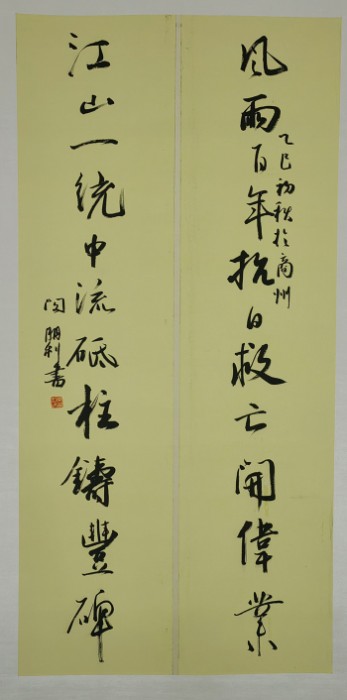 風雨百年抗日救亡開偉業
乙巳初秋於商州
江山一统中流砥柱鑄豐碑
闵朋利書